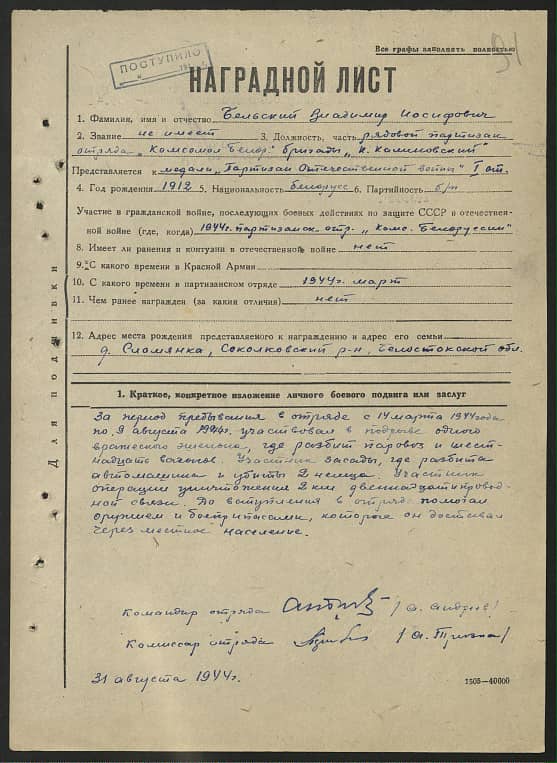 Все графы заполнять полностью
91
ПОСТУПИЛО
НАГРАДНОЙ ЛИСТ
1. Фамилия, имя и отчество Бельский Владимир Иосифович
2. Звание не имеет 3. Должность, часть рядовой партизан
отряда "Комсомол Белор." бригады "К. Калиновский"
Представляется к медали "Партизан Отечественной войны" I ст.
4. Год рождения 1912 5. Национальность белорусс 6. Партийность б/п
Участие в гражданской войне, последующих боевых действиях по защите СССР и отечествен-
ной войне (где, когда) 1944г. партизанск. отр. "Комс. Белоруссии"
8. Имеет ли ранения и контузия в отечественной войне нет
9. С какого времени в Красной Армии
10. С какого времени в партизанском отряде 1944г. март
11. Чем ранее награжден (за какии отличия) нет
12. Адрес места рождения представляемого к награждению и адрес его семьи
д. Сломянка, Соколковский р-н, Белостокской обл.
Для подшивки
1. Краткое, конкретное изложение личного боевого подвига или заслуг
За период пребывания в отряде с 14 марта 1944 года
по 9 августа 1944г. участвовал в подрыве одного
вражеского эшелона, где разбит паровоз и шест-
надцать вагонов. Участник засады, где разбита
автомашина и убиты 2 немца. Участник
операции уничтожения 2 км двеннадцатипровод-
ной связи. До вступления в отряд помогал
оружием и боеприпасами, которые он доставал
через местное население.
Командир отряда
Комиссар отряда
31 августа 1944г.
1505—40000